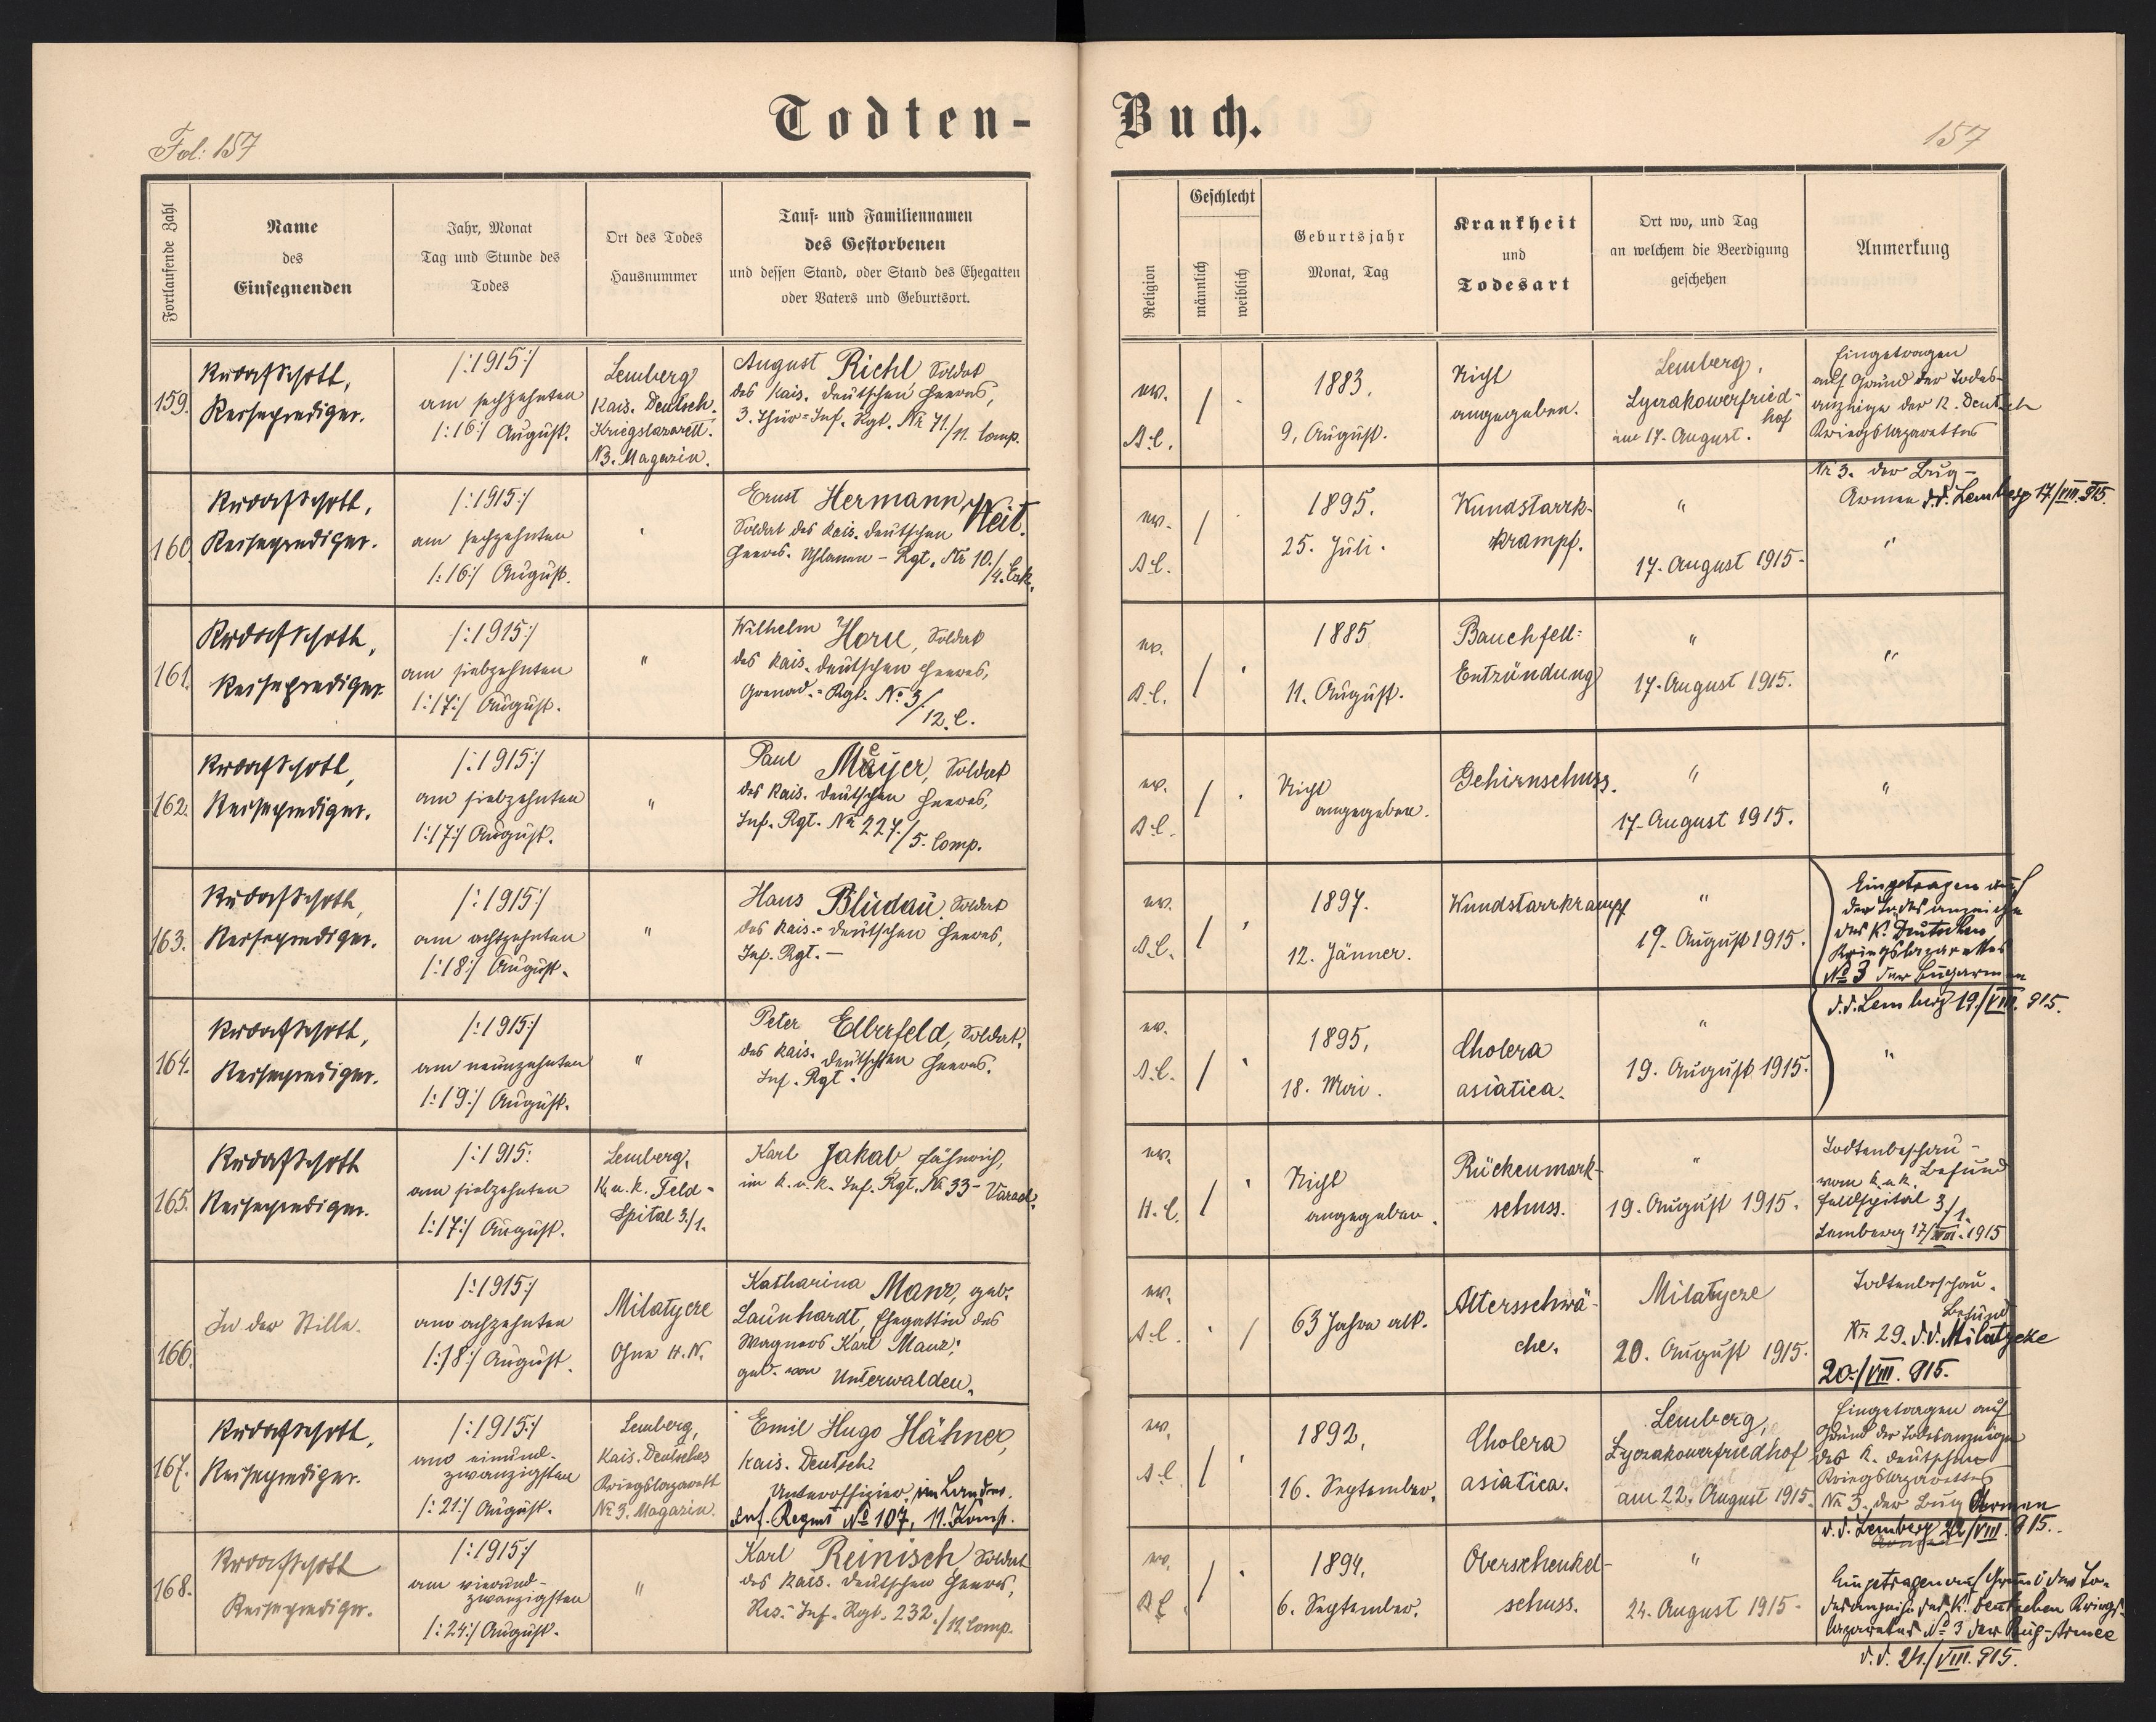 Fol: 157
Todten-
Buch.
157
Fortlaufende Zahl
Name
des
Einsegnenden
Jahr, Monat
Tag und Stunde des
Todes
Ort des Todes
Hausnummer
Tauf- und Familiennamen
des Gestorbenen
und dessen Stand, oder Stand des Ehegatten
oder Vaters und Geburtsort.
Religion
Geschlecht
männlich
weiblich
Geburtsjahr
Monat, Tag
Krankheit
und
Todesart
Ort wo, und Tag
an welchem die Beerdigung
geschehen
Anmerkung
159.
Reiseprediger.
/:1915:/
am sechzehnten
/:16:/ August.
Lemberg
Kais. Deutsch.
Kriegslazarett.
N3. Magazin.
August Riehl Soldat
des Kais. deutschen Heeres,
3. Thür-Inf. Rgt. Nr 71./11. Comp.
ev.
A.C.
1883.
9. August.
Nicht
angegeben.
Lemberg,
Lyczakowerfried-
hof
am 17. August.
Eingetragen
auf Grund der Todes-
anzeige des K. Deutsch
Kriegslazarettes
Nr 3. der Bug-
Armee d.d. Lemberg 17/VIII. 915.
160.
Reiseprediger.
/:1915:/
am sechzehnten
/:16:/ August.
Ernst Hermann Weit.
Soldat des Kais. deutschen
Heeres. Uhlanen-Rgt. Nr 10./4. Esk.
ev.
A.C.
1895.
25. Juli.
Wundstarrk-
krampf.
"
17. August 1915.
"
161.
Reiseprediger
/:1915:/
am siebzehnten
/:17:/ August.
"
Wilhelm Horn, Soldat
des Kais. deutschen Heeres,
Grenad.-Rgt. No 3/
12. C.
ev.
A.C.
1885
11. August.
Bauchfell-
Entzündung
"
17. August 1915.
"
162.
Reiseprediger.
/:1915:/
am siebzehnten
/:17:/ August.
"
Paul Meyer, Soldat
des Kais. deutschen Heeres,
Inf. Rgt. Nr 227./5. Comp.
ev.
A.C.
Nicht
angegeben.
Gehirnschuss.
"
17. August 1915.
"
163.
Reiseprediger.
/:1915:/
am achtzehnten
/:18:/ August.
"
Hans Bludau, Soldat
des Kais.-deutschen Heeres,
Inf. Rgt. —
ev.
A.C.
1897.
12. Jänner.
Wundstarrkrampf
"
19. August 1915.
Eingetragen auf
der Todesanzeige
des K. Deutschen
Kriegslazarettes
No 3 der Bugarmee
d.d. Lemberg 19./VIII. 915.
164.
Reiseprediger.
/:1915:/
am neunzehnten
/:19:/ August.
"
Peter Elberfeld, Soldat.
des Kais. deutschen Heeres.
Inf. Rgt.
ev.
A.C.
1895,
18. Mai.
Cholera
asiatica.
"
19. August 1915.
"
165.
Reiseprediger.
/:1915:
am siebzehnten
/:17:/ August.
Lemberg.
K. u. K. Feld-
Spital 3/1.
Karl Jakab Fähnrich,
im K. u. K. Inf. Rgt. Nr 33- Varad.
ev.
H.C.
Nicht
angegeben.
Rückenmark-
schuss.
"
19. August 1915.
Todtenbeschau-
Befund
vom k. u. k.
Feldspital 3/1.
Lemberg 17/VIII. 1915
166.
In der Stille.
/:1915:/
am achzehnten
/:18:/ August.
Milatycze
Ohne H.N.
Katharina Manz, geb.
Launhardt, Ehegattin des
Wagners Karl Manz;
geb. von Unterwalden.
ev.
A.C.
63 Jahre alt.
Altersschwä-
che.
Milatycze
20. August 1915.
Todtenbeschau.
Befund
Nr 29. d.d. Milatycze
20./VIII. 915.
167.
Reiseprediger.
/:1915:/
am einund-
zwanzigsten
/:21:/ August.
Lemberg,
Kais. Deutsches
Kriegslazarett
Nr 3. Magazin.
Emil Hugo Hähner,
Kais. Deutsch.
Unteroffizier im Landw.
Inf. Regmt No 107, 11. Komp.
ev.
A.C.
1892,
16. September.
Cholera
asiatica.
Lemberg,
Lyczakowerfriedhof
am 22. August 1915.
Eingetragen auf
Grund der Todesanzeige
des K. deutschen
Kriegslazarettes
Nr 3. der Bug Armee
d.d. Lemberg 22/VIII. 915.
168.
Reiseprediger.
/:1915:/
am vierund-
zwanzigsten
/:24:/ August.
"
Karl Reinisch Soldat
des Kais. deutschen Heeres,
Res.-Inf. Rgt. 232./11. Comp.
ev.
A.C.
1894.
6. September.
Oberschenkel-
schuss.
"
24. August 1915.
Eingetragen auf Grund der To-
desanzeige des K. Deutschen Kriegs-
lazarettes No 3 der Bug-Armee
d.d. 24./VIII. 915.